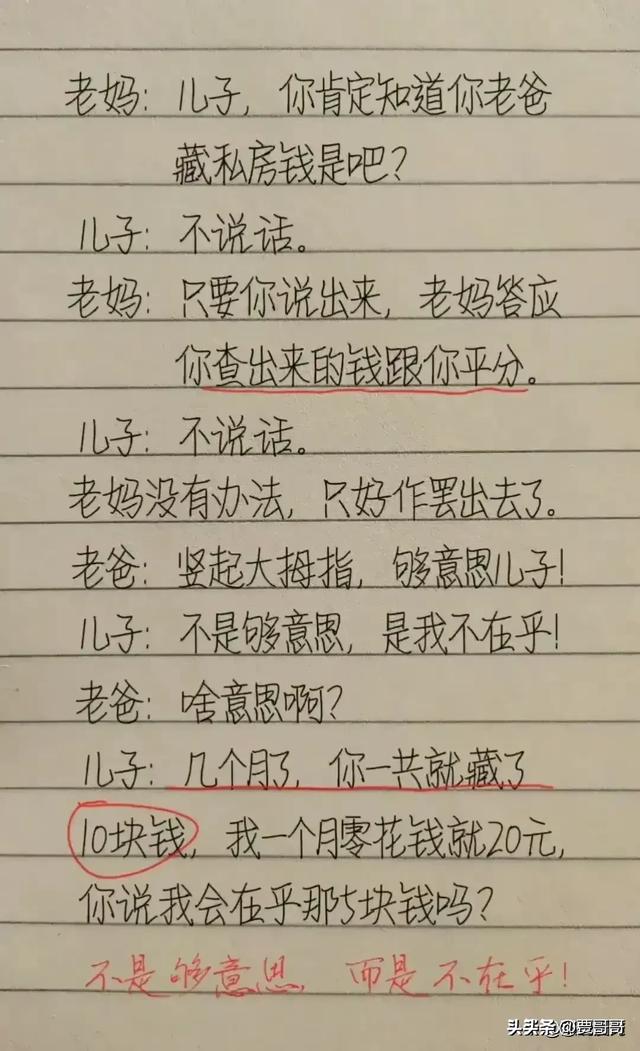 老妈：儿子，你肯定知道你老爸
藏私房钱是吧？
儿子：不说话。
老妈：只要你说出来，老妈答应
你查出来的钱跟你平分。
儿子：不说话。
老妈没有办法，只好作罢出去了。
老爸：竖起大拇指，够意思儿子！
儿子：不是够意思，是我不在乎！
老爸：啥意思啊？
儿子：几个月了，你一共就藏了
10块钱，我一个月零花钱就20元，
你说我会在乎那5块钱吗？
不是够意思，而是不在乎！
头条 @贾哥哥